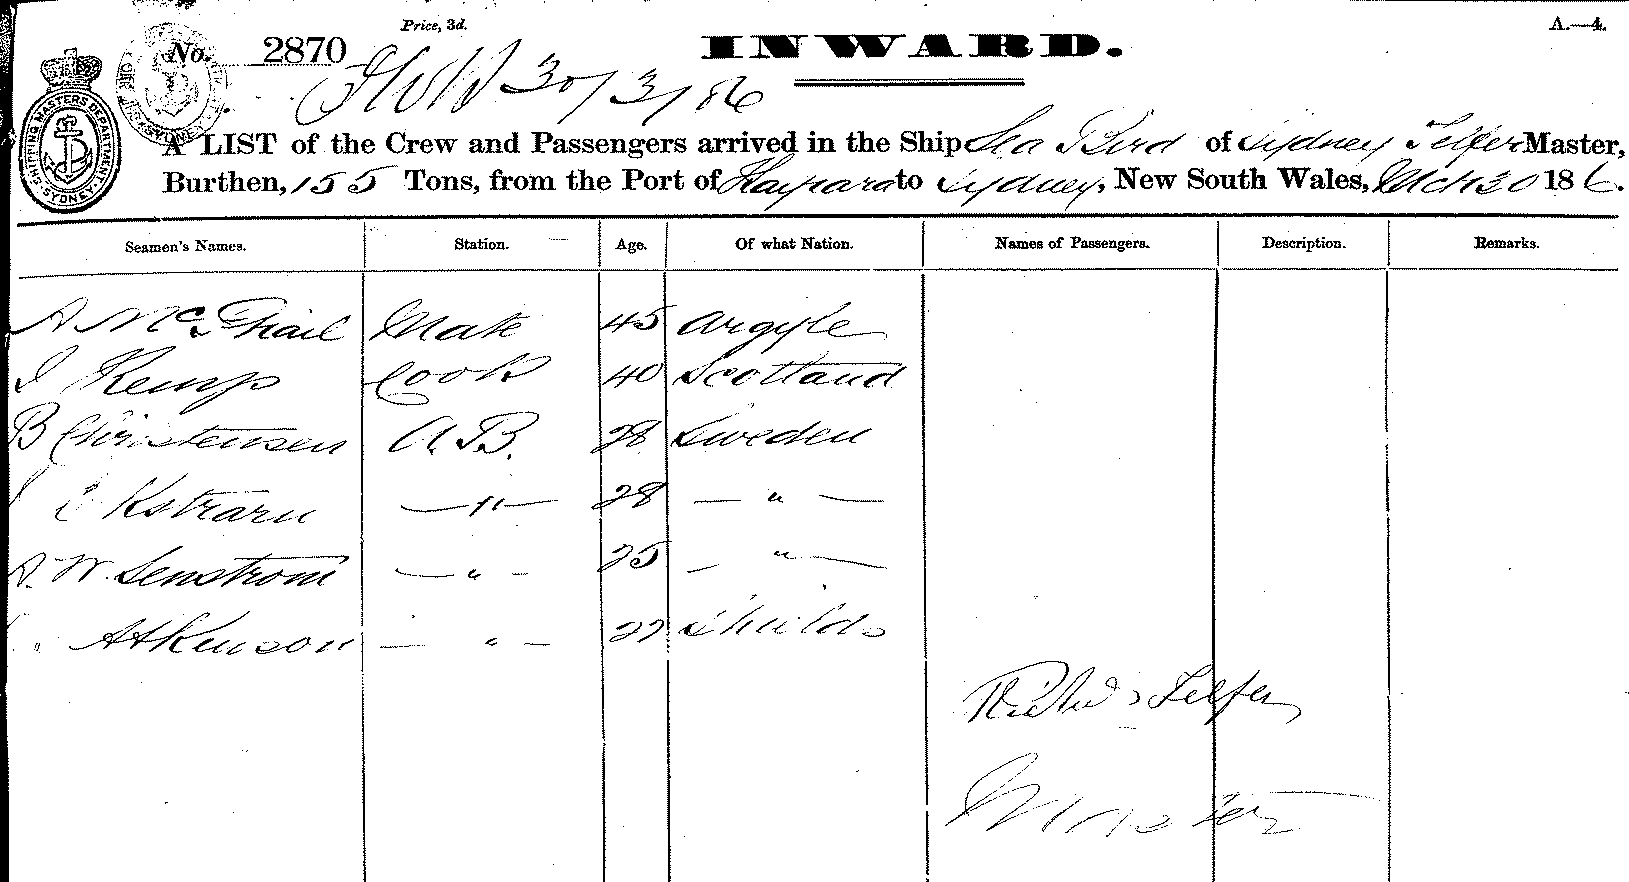 Price, 3d.
A.—4.
No. 2870
INWARD.
30/3/86
SHIPPING MASTERS DEPARTMENT SYDNEY
A LIST of the Crew and Passengers arrived in the Ship Sea Bird of Sydney Telfer Master,
Burthen, 155 Tons, from the Port of Kaipara to Sydney, New South Wales, Mch 30 186
Seamen's Names. Station. Age. Of what Nation. Names of Passengers. Description. Remarks.
A McPhail Mate 45 Argyle
J Kemp Cook 40 Scotland
B Christensen A.B. 28 Sweden
Ekstrom — " — 28 — " —
A. W. Senstrom — " — 25 — " —
Atkinson — " — 22 Shields
Telfer
Master